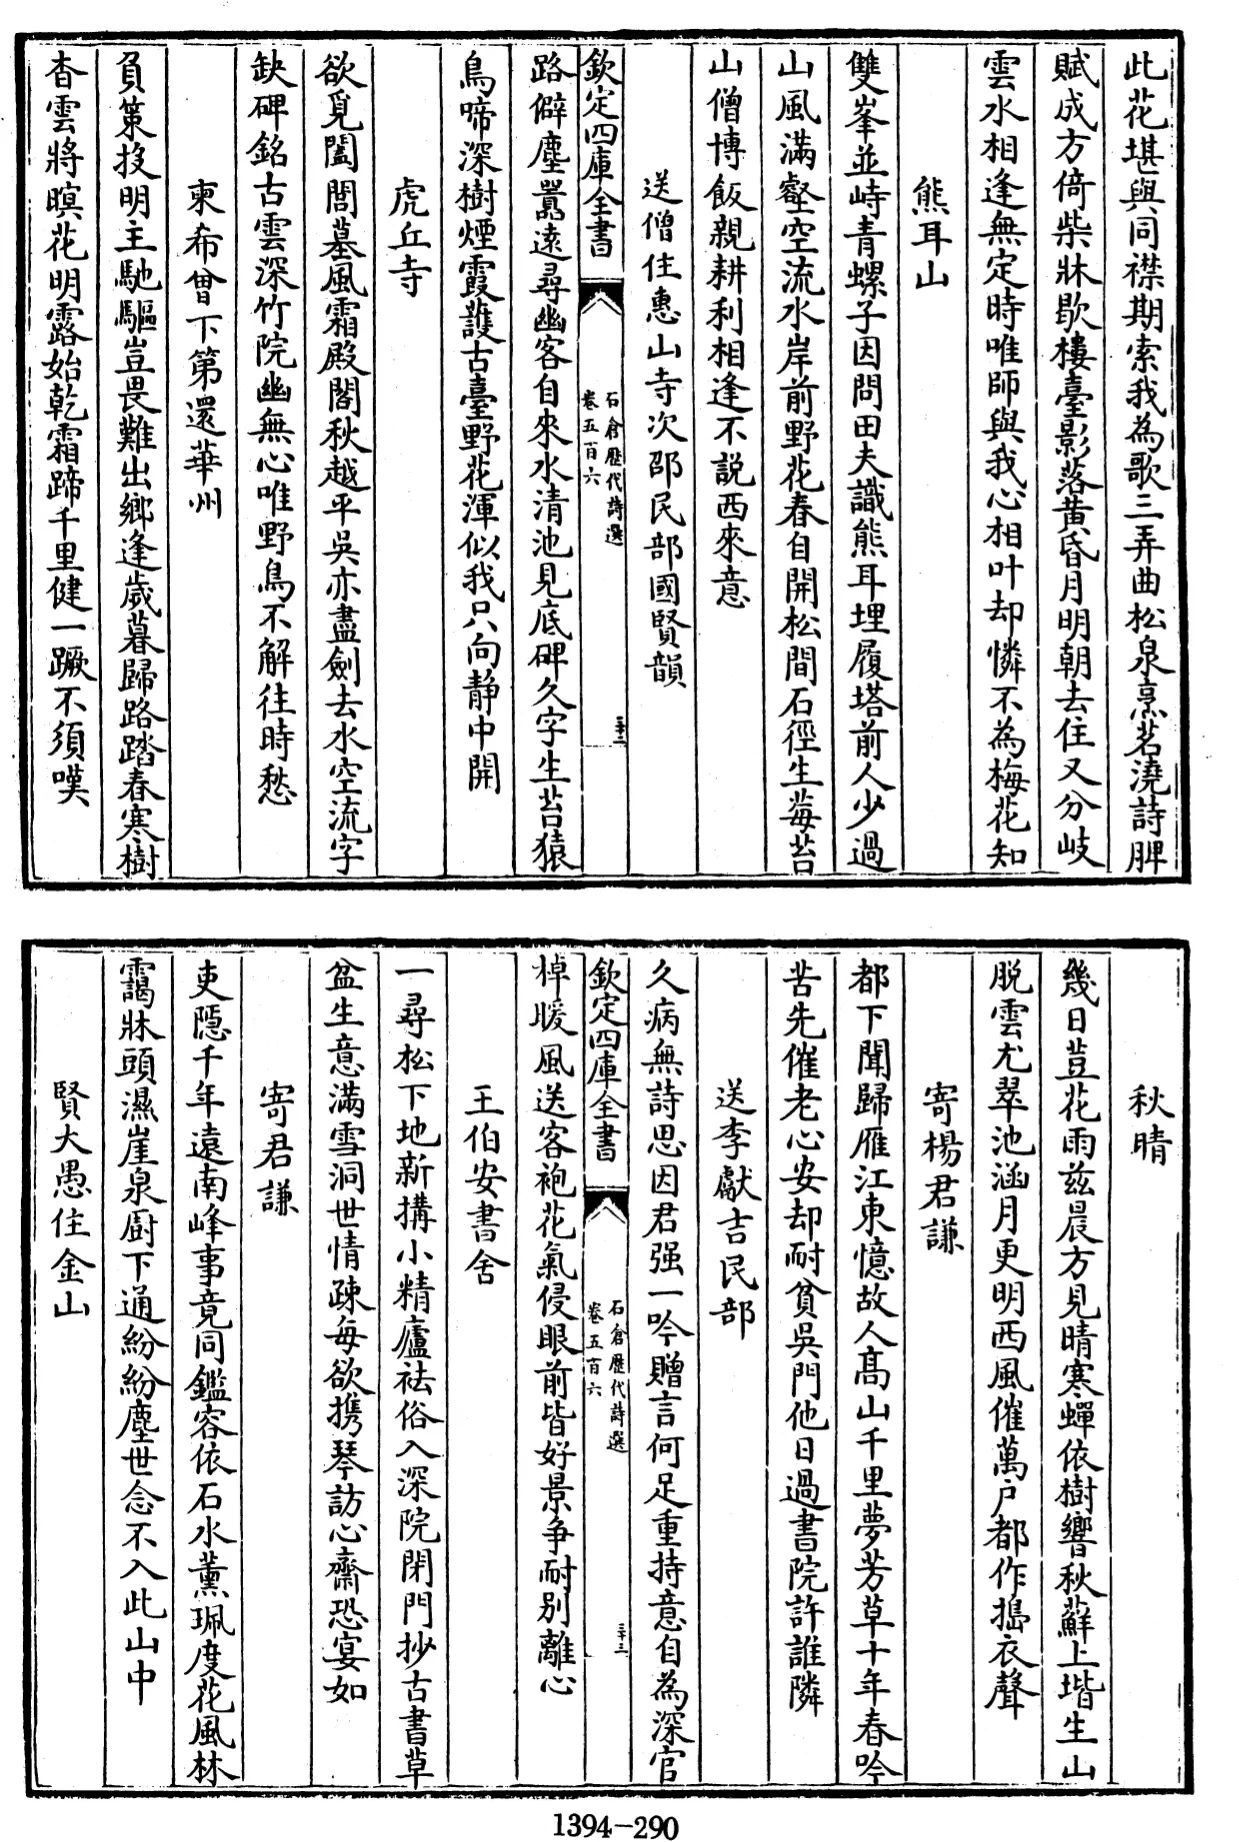 此花堪與同襟期索我為歌三弄曲松泉烹茗澆詩脾
賦成方倚柴牀歇樓臺影落黄昏月明朝去住又分岐
雲水相逢無定時唯師與我心相叶却憐不為梅花知
熊耳山
雙峯並峙青螺子因問田夫識熊耳埋履塔前人少過
山風滿壑空流水岸前野花春自開松間石徑生莓苔
山僧博飯親耕利相逢不説西來意
送僧住惠山寺次邵民部國賢韻
欽定四庫全書
石倉歷代詩選
卷五百六
三十二
路僻塵囂遠尋幽客自來水清池見底碑久字生苔猿
鳥啼深樹煙霞護古臺野花渾似我只向静中開
虎丘寺
欲覓闔閭墓風霜殿閣秋越平吳亦盡劍去水空流字
缺碑銘古雲深竹院幽無心唯野鳥不解往時愁
東希曾下第還華州
負策投明主馳驅豈畏難出鄉逢歲暮歸路踏春寒樹
杳雲將暝花明露始乾霜蹄千里健一蹶不須嘆
秋晴
幾日荳花雨兹晨方見晴寒蟬依樹響秋蘚上堦生山
脱雲尤翠池涵月更明西風催萬户都作搗衣聲
寄楊君謙
都下聞歸雁江東憶故人髙山千里夢芳草十年春吟
苦先催老心安却耐貧吳門他日過書院許誰隣
送李獻吉民部
久病無詩思因君强一吟贈言何足重持意自為深官
欽定四庫全書
石倉歷代詩選
卷五百六
三十三
棹暖風送客袍花氣侵眼前皆好景争耐别離心
王伯安書舍
一尋松下地新搆小精廬祛俗入深院閉門抄古書草
盆生意滿雪洞世情疎每欲携琴訪心齋恐宴如
寄君謙
吏隱千年遠南峰事竟同鑑容依石水薰珮度花風林
靄牀頭濕崖泉厨下通紛紛塵世念不入此山中
賢大愚住金山
1394-290